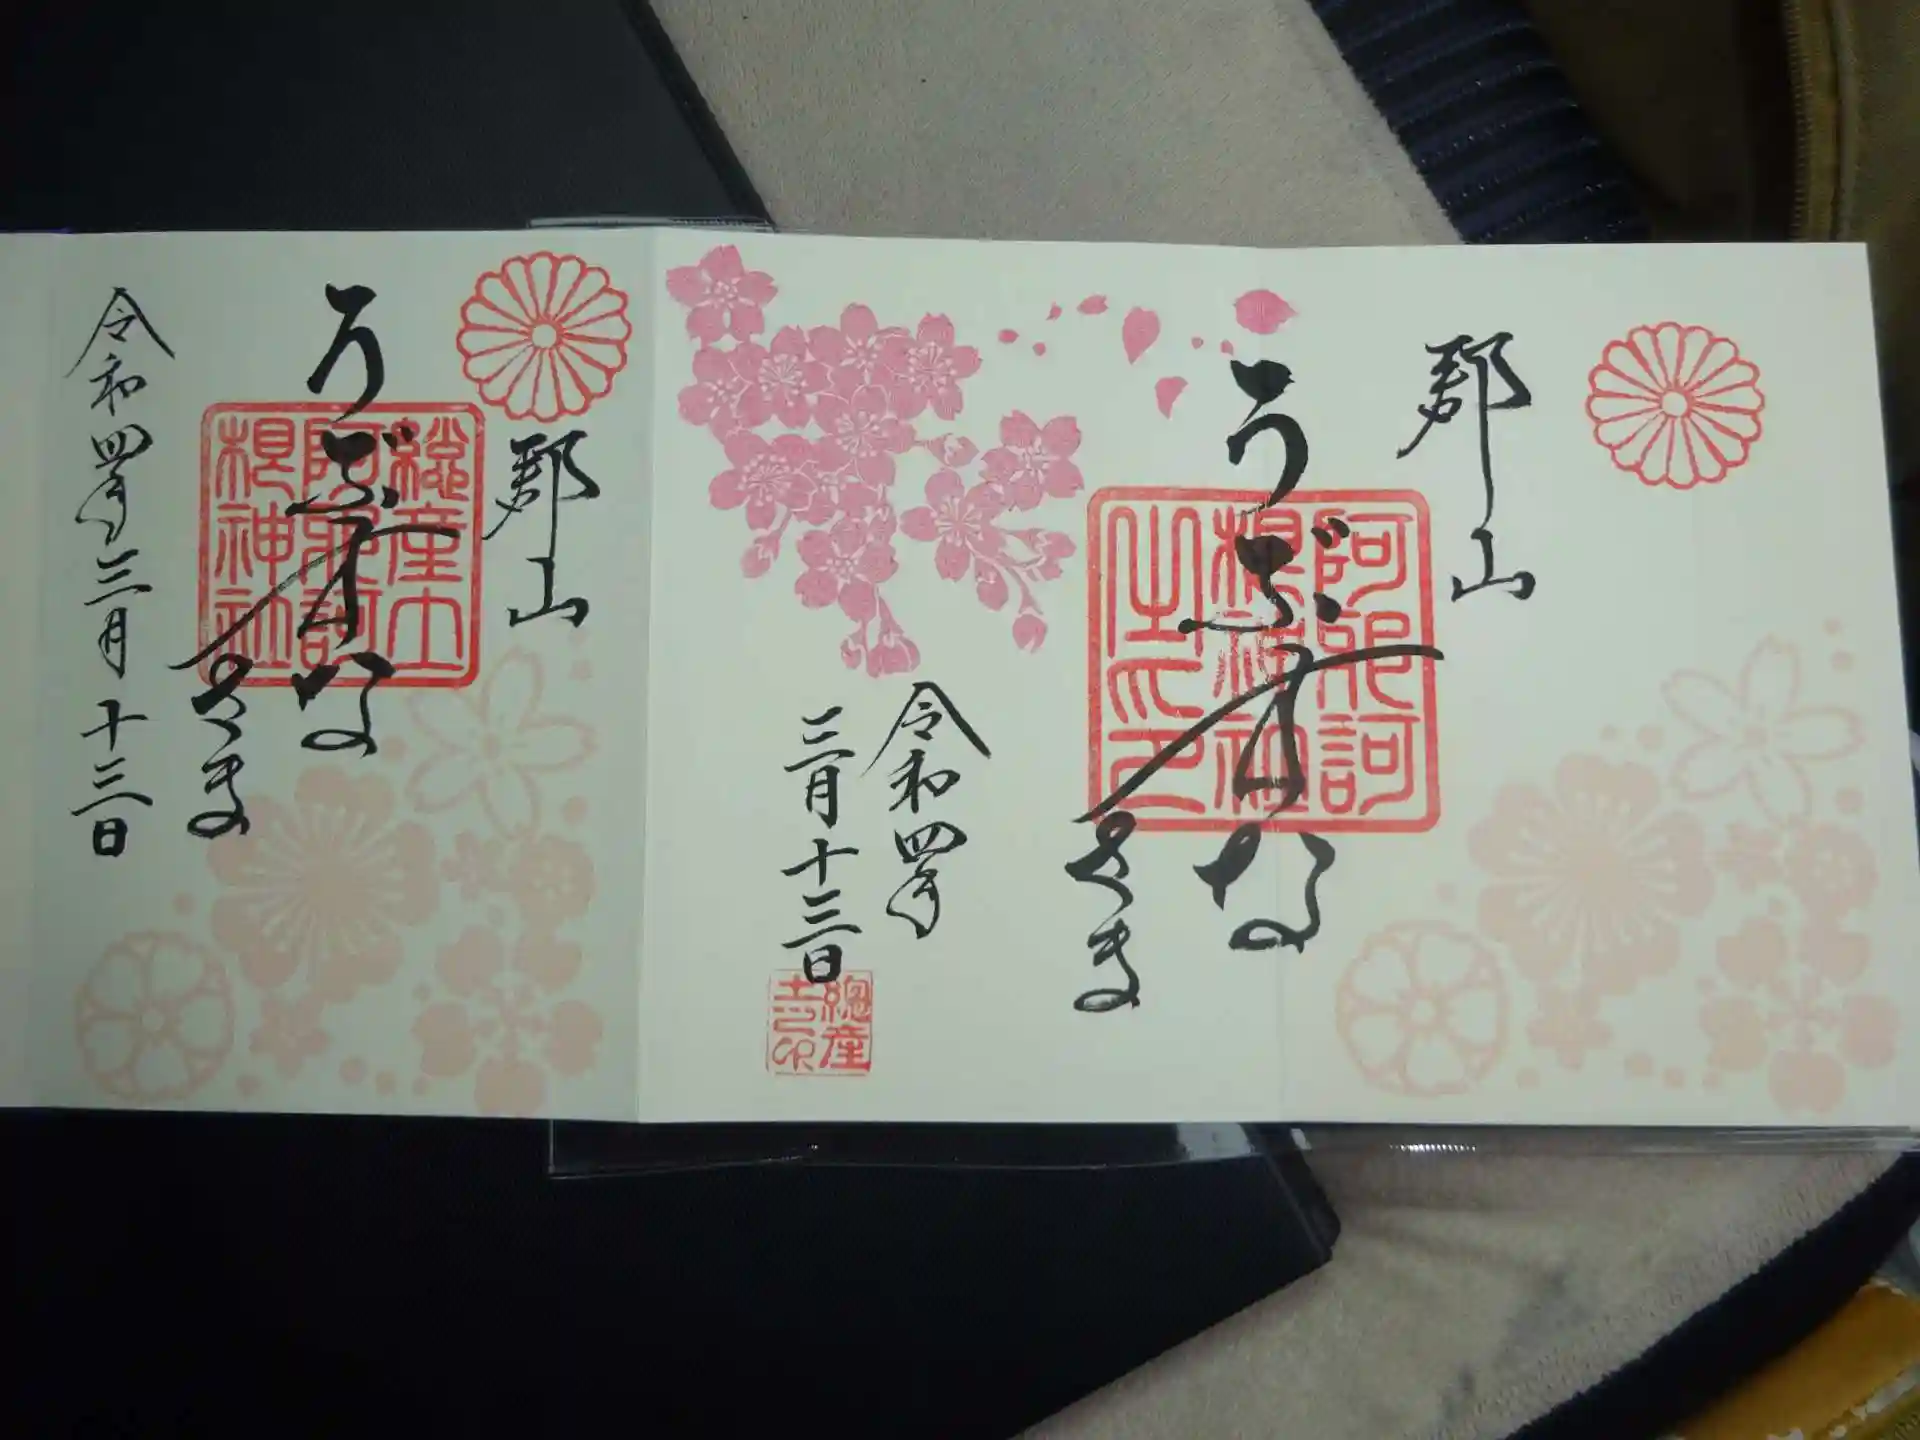 郡山
うぶすな
さま
阿邪訶
根神社
之印
令和四年
三月十三日
郡山
うぶすな
さま
総産土
阿邪訶
根神社
令和四年三月十三日